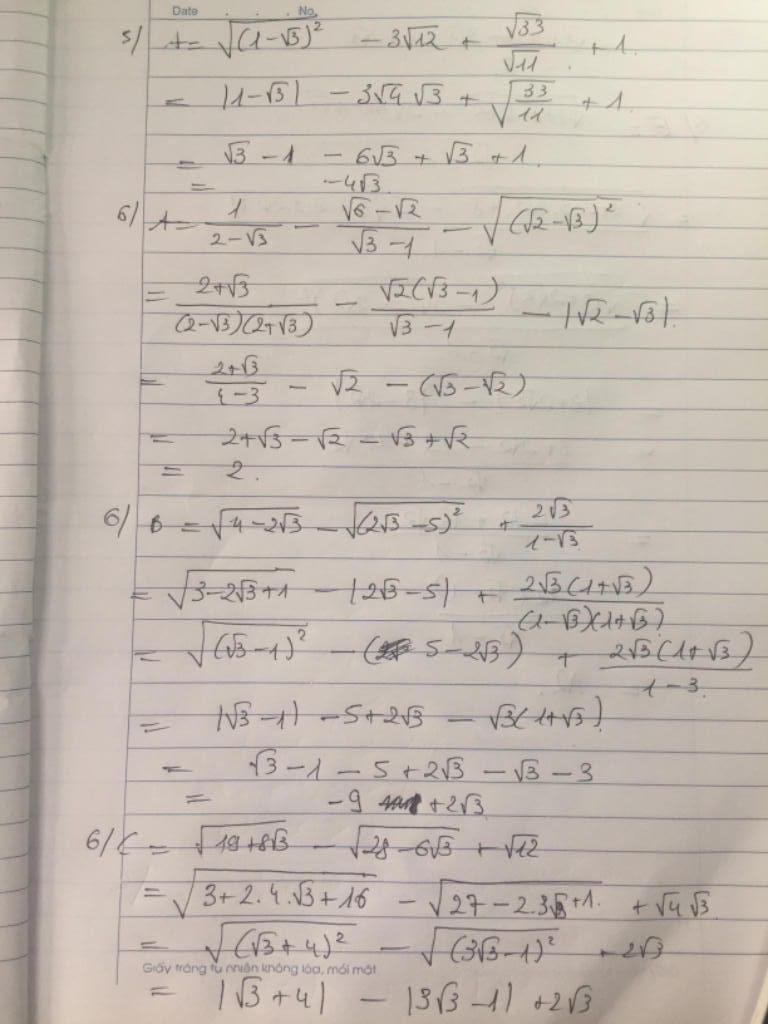 Date . . . No.
5/ A = √(1-√3)² - 3√12 + √33/√11 + 1.
= |1-√3| - 3√4 √3 + √(33/11) + 1
= √3 - 1 - 6√3 + √3 + 1.
= -4√3.
6/ A = 1/(2-√3) - (√6-√2)/(√3-1) - √(√2-√3)²
= (2+√3)/((2-√3)(2+√3)) - √2(√3-1)/(√3-1) - |√2-√3|.
= (2+√3)/(4-3) - √2 - (√3-√2)
= 2+√3-√2-√3+√2
= 2.
6/ B = √(4-2√3) - √(2√3-5)² + 2√3/(1-√3)
= √(3-2√3+1) - |2√3-5| + 2√3(1+√3)/((1-√3)(1+√3))
= √(√3-1)² - (5-2√3) + 2√3(1+√3)/(1-3).
= |√3-1| - 5+2√3 - √3(1+√3)
= √3-1-5+2√3-√3-3
= -9 +2√3
6/ C = √(19+8√3) - √(28-6√3) + √12
= √(3+2.4.√3+16) - √(27-2.3√3+1.) + √4 √3
= √(√3+4)² - √(3√3-1)² + 2√3
Giấy trắng tự nhiên không lóa, mỏi mắt
= |√3+4| - |3√3-1| + 2√3